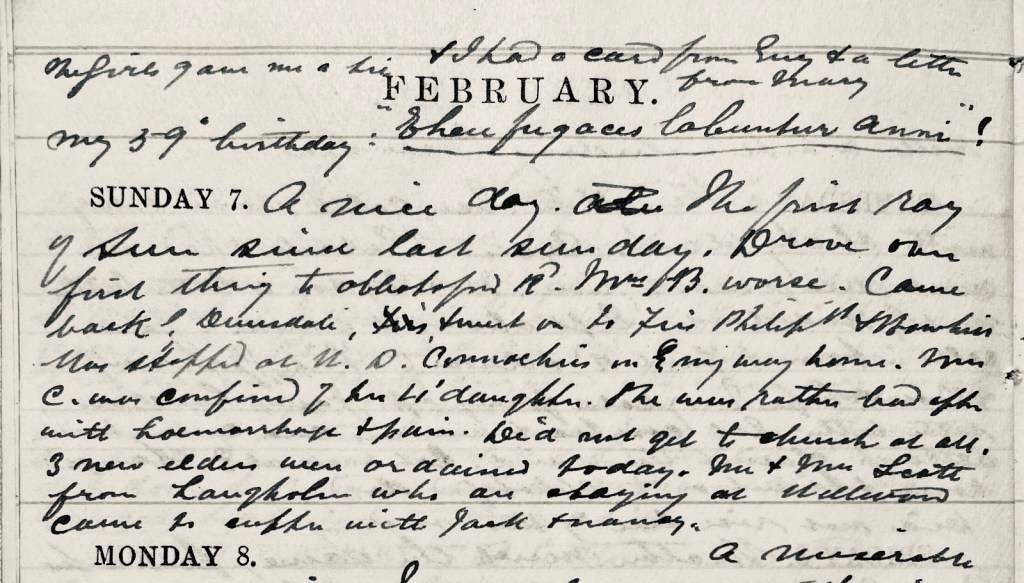 The Girls gave me a & I had a card from Evey & a letter
from Mary
FEBRUARY.
my 59th birthday. "Eheu fugaces labuntur anni"!
SUNDAY 7. A nice day. The first ray
of sun since last sunday. Drove over
first thing to Abbotsford Rd. Mrs B. worse. Came
back, & went on to & Hawkins
Was stopped at Connochies on my way home. Mrs
C. was confined of her daughter. She was rather bad after
with haemorrhage & pain. Did not get to church at all.
3 new elders were ordained today. Mr & Mrs Scott
from Langholm who are staying at Hillwood
came to supper with Jack & Nancy.
MONDAY 8. A miserable